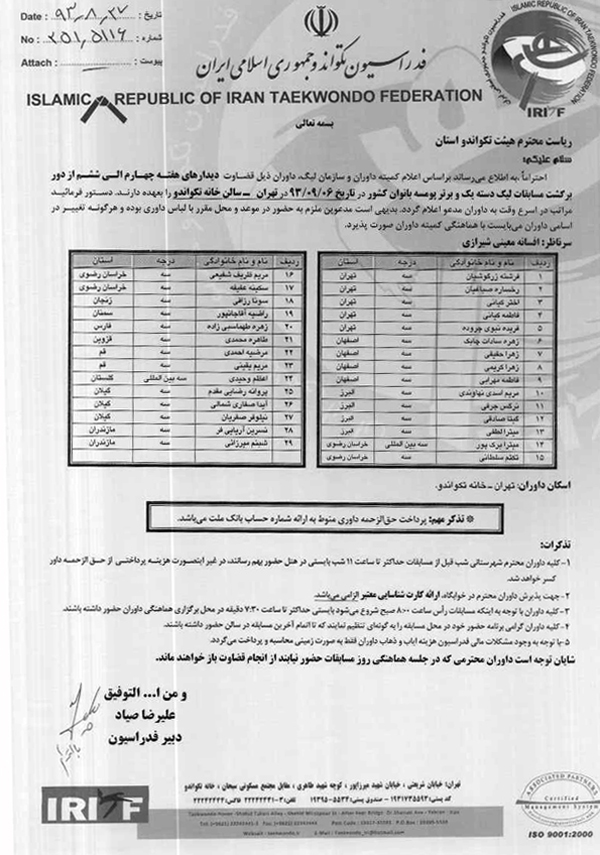 Date : ۹۳,۸,۲۷ تاریخ :
No : ۲۵۱,۵۱۱۶ شماره :
Attach : پیوست :
ISLAMIC REPUBLIC OF IRAN TAEKWONDO FEDERATION
IRITF
فدراسیون تکواندو جمهوری اسلامی ایران
ISLAMIC REPUBLIC OF IRAN TAEKWONDO FEDERATION
بسمه تعالی
ریاست محترم هیئت تکواندو استان
سلام علیکم؛
احتراماً، به اطلاع می‌رساند براساس اعلام کمیته داوران و سازمان لیگ، داوران ذیل قضاوت دیدارهای هفته چهارم الی ششم از دور
برگشت مسابقات لیگ دسته یک و برتر پومسه بانوان کشور در تاریخ ۹۳/۰۹/۰۶ در تهران – سالن خانه تکواندو را بعهده دارند. دستور فرمائید
مراتب در اسرع وقت به داوران مدعو اعلام گردد. بدیهی است مدعوین ملزم به حضور در موعد و محل مقرر با لباس داوری بوده و هرگونه تغییر در
اسامی داوران می‌بایست با هماهنگی کمیته داوران صورت پذیرد.
سرناظر: افسانه معینی شیرازی
ردیف نام و نام خانوادگی درجه استان
۱ فرشته زرکوشیان سه تهران
۲ رخساره صباغیان سه تهران
۳ اختر کیانی سه تهران
۴ فاطمه کیانی سه تهران
۵ فریده نبوی چروده سه تهران
۶ زهره سادات چابک سه اصفهان
۷ زهرا حقیقی سه اصفهان
۸ زهرا کریمی سه اصفهان
۹ فاطمه مهرابی سه اصفهان
۱۰ مریم اسدی نهاوندی سه البرز
۱۱ نرگس جرفی سه البرز
۱۲ گیتا صادقی سه البرز
۱۳ میترا لطفی سه البرز
۱۴ میترا برک پور سه بین المللی خراسان رضوی
۱۵ تکتم سلطانی سه خراسان رضوی
ردیف نام و نام خانوادگی درجه استان
۱۶ مریم ظریف شفیعی سه خراسان رضوی
۱۷ سکینه عفیفه سه خراسان رضوی
۱۸ سونا رزاقی سه زنجان
۱۹ راضیه آقاجانپور سه سمنان
۲۰ زهره طهماسبی زاده سه فارس
۲۱ طاهره محمدی سه قزوین
۲۲ مرضیه احمدی سه قم
۲۳ مریم یقینی سه قم
۲۴ اعظم وحیدی سه بین المللی گلستان
۲۵ پروانه رضایی مقدم سه گیلان
۲۶ آیدا صفاری شمالی سه گیلان
۲۷ نیلوفر صفریان سه گیلان
۲۸ نسرین آریایی فر سه مازندران
۲۹ شبنم میرزائی سه مازندران
اسکان داوران: تهران - خانه تکواندو.
※ تذکر مهم: پرداخت حق‌الزحمه داوری منوط به ارائه شماره حساب بانک ملت می‌باشد.
تذکرات:
۱- کلیه داوران محترم شهرستانی شب قبل از مسابقات حداکثر تا ساعت ۱۱ شب بایستی در هتل حضور بهم رسانند، در غیر اینصورت هزینه پرداختی از حق الزحمه داور
کسر خواهد شد.
۲- جهت پذیرش داوران محترم در خوابگاه، ارائه کارت شناسایی معتبر الزامی می‌باشد.
۳- کلیه داوران با توجه به اینکه مسابقات رأس ساعت ۸:۰۰ صبح شروع می‌شود بایستی حداکثر تا ساعت ۷:۳۰ دقیقه در محل برگزاری هماهنگی داوران حضور داشته باشند.
۴- کلیه داوران گرامی برنامه حضور خود در محل مسابقه را به گونه‌ای تنظیم نمایند که تا اتمام آخرین مسابقه در سالن حضور داشته باشند.
۵- با توجه به وجود مشکلات مالی فدراسیون هزینه ایاب و ذهاب داوران فقط به صورت زمینی محاسبه و پرداخت می‌گردد.
شایان توجه است داوران محترمی که در جلسه هماهنگی روز مسابقات حضور نیابند از انجام قضاوت باز خواهند ماند.
و من ا... التوفیق
علیرضا صیاد
دبیر فدراسیون
تهران: خیابان شریعتی، خیابان شهید میرزاپور، کوچه شهید طاهری، مقابل مجتمع مسکونی سبحان، خانه تکواندو
کد پستی: ۱۹۳۱۷۳۵۵۹۳ – صندوق پستی: ۵۵۳۴–۱۹۳۹۵
IRITF
ASSOCIATED PARTNERS
Certified
Management System
ISO 9001:2000